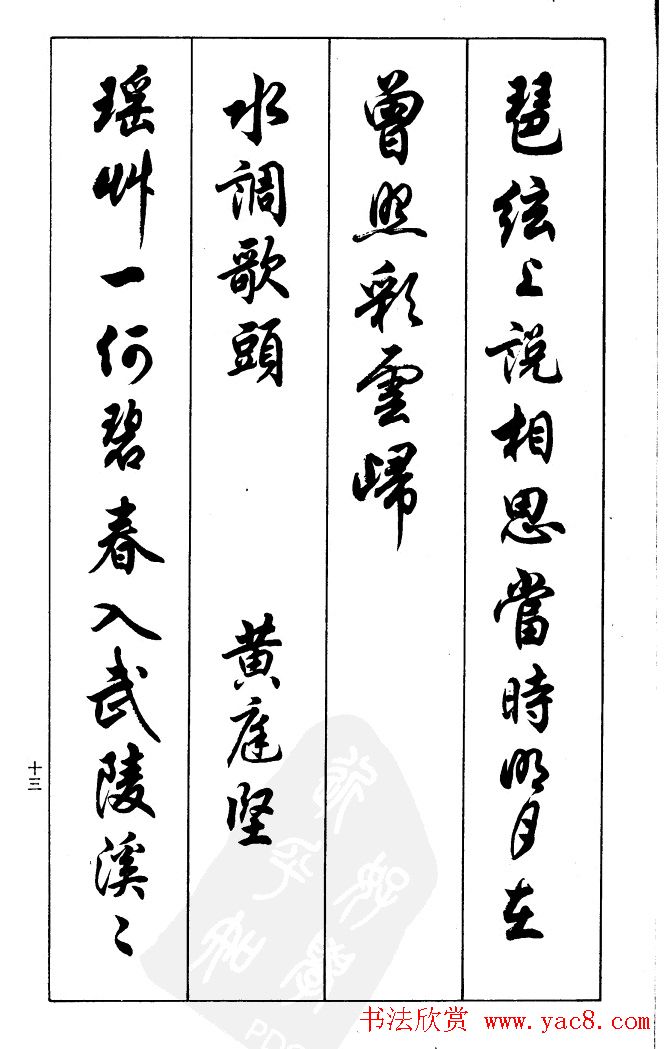 琶絃上說相思當時明月在
曾照彩雲歸
水調歌頭 黄庭堅
瑶艸一何碧春入武陵溪〻
十三
书法欣赏 www.yac8.com